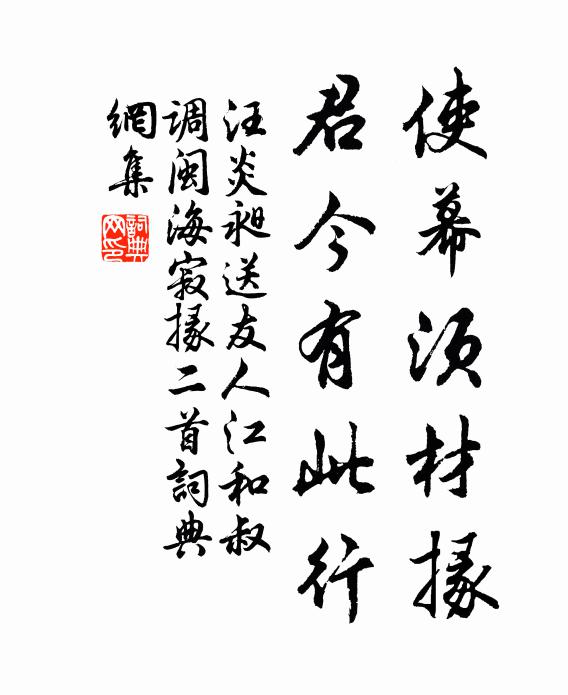 使幕须材掾
君今有此行
汪炎昶送友人江和叔
调闽海寂掾二首詞典
網集
詞典
网印